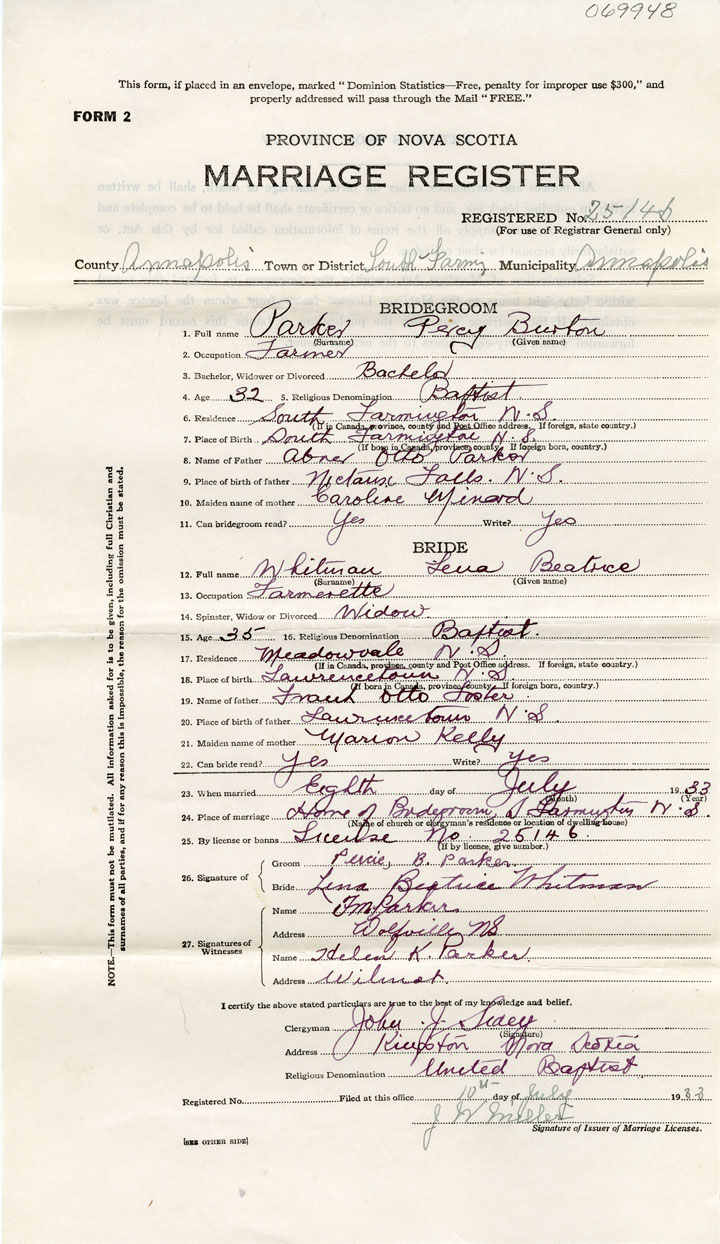 069948
This form, if placed in an envelope, marked "Dominion Statistics—Free, penalty for improper use $300," and
properly addressed will pass through the Mail "FREE."
FORM 2
PROVINCE OF NOVA SCOTIA
MARRIAGE REGISTER
REGISTERED No. 25146
(For use of Registrar General only)
County Annapolis Town or District South Farming Municipality Annapolis
BRIDEGROOM
1. Full name Parker Percy Burton
(Surname) (Given name)
2. Occupation Farmer
3. Bachelor, Widower or Divorced Bachelor
4. Age 32 5. Religious Denomination Baptist
6. Residence South Farmington N.S.
(If in Canada, province, county and Post Office address. If foreign, state country.)
7. Place of Birth South Farmington N.S.
(If born in Canada, province, county. If foreign born, country.)
8. Name of Father Abner Otto Parker
9. Place of birth of father Nictaux Falls. N.S.
10. Maiden name of mother Caroline Minard
11. Can bridegroom read? Yes Write? Yes
BRIDE
12. Full name Whitman Lena Beatrice
(Surname) (Given name)
13. Occupation Farmerette
14. Spinster, Widow or Divorced Widow
15. Age 35 16. Religious Denomination Baptist.
17. Residence Meadowvale N.S.
(If in Canada, province, county and Post Office address. If foreign, state country.)
18. Place of birth Lawrencetown N.S.
(If born in Canada, province, county. If foreign born, country.)
19. Name of father Frank Otto Foster
20. Place of birth of father Lawrencetown N.S.
21. Maiden name of mother Marion Kelly
22. Can bride read? Yes Write? Yes
23. When married Eighth day of July 1933
(Month) (Year)
24. Place of marriage Home of Bridegroom, S Farmington N.S.
(Name of church or clergyman's residence or location of dwelling house)
25. By license or banns License No 25146
(If by licence, give number.)
26. Signature of
Groom Percie B. Parker.
Bride Lena Beatrice Whitman
27. Signatures of Witnesses
Name Parker
Address Wolfville NS
Name Helen K. Parker.
Address Wilmot.
I certify the above stated particulars are true to the best of my knowledge and belief.
Clergyman John J. Sidey
(Signature)
Address Kingston Nova Scotia
Religious Denomination United Baptist
Registered No. Filed at this office 10th day of July 1933
J W Miller
Signature of Issuer of Marriage Licenses.
[SEE OTHER SIDE]
NOTE.—This form must not be mutilated. All information asked for is to be given, including full Christian and
surnames of all parties, and if for any reason this is impossible, the reason for the omission must be stated.